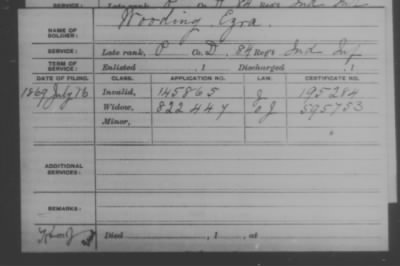 NAME OF SOLDIER: Wooding, Ezra.
SERVICE: Late rank, P Co. D, 84 Reg't Ind Inf
TERM OF SERVICE: Enlisted , 1 Discharged , 1
DATE OF FILING. CLASS. APPLICATION NO. LAW. CERTIFICATE NO.
1869 July 26 Invalid, 145865 J 195284
Widow, 822447 O J 595753
Minor,
ADDITIONAL SERVICES:
REMARKS:
Died , 1 , at